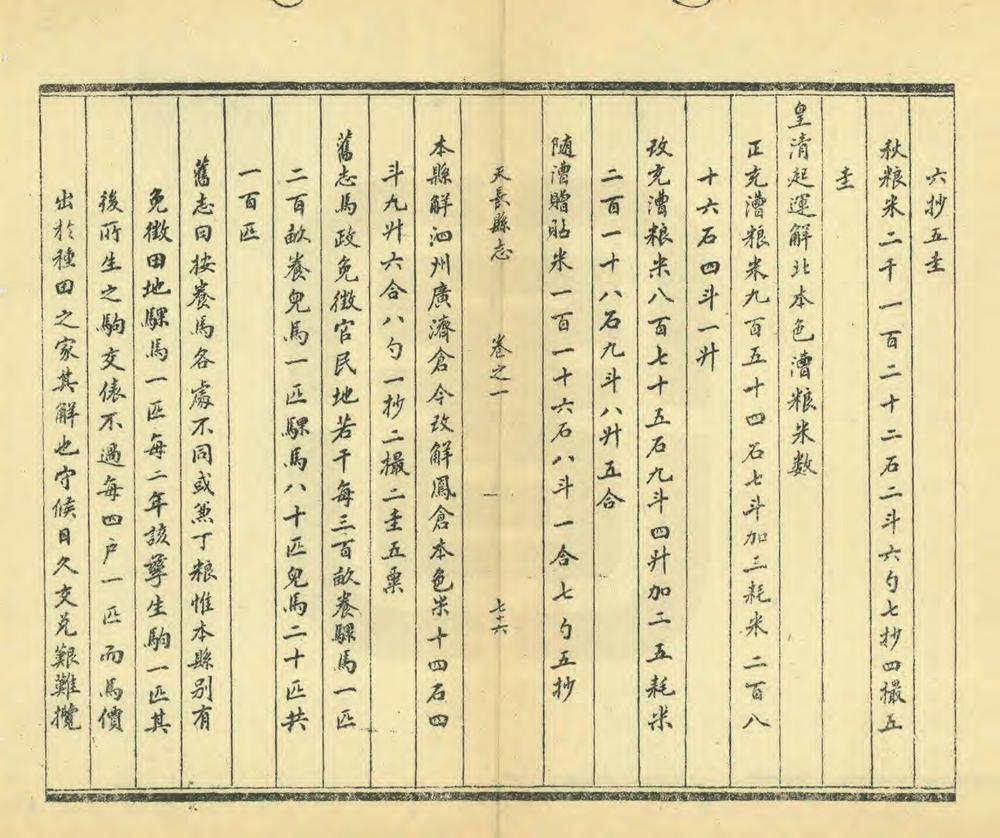 六抄五圭
秋粮米二千一百二十二石二斗六勺七抄四撮五
圭
皇清起運解北本色漕粮米数
正兊漕粮米九百五十四石七斗加三耗米二百八
十六石四斗一升
攺兊漕粮米八百七十五石九斗四升加二五耗米
二百一十八石九斗八升五合
随漕贈貼米一百一十六石八斗一合七勺五抄
天長縣志 卷之一 七十六
本縣解泗州廣濟倉今攺解鳳倉本色米十四石四
斗九升六合八勺一抄二撮二圭五粟
舊志馬政免徴官民地若干每三百畝養騍馬一匹
二百畝養兒馬一匹騍馬八十匹兒馬二十匹共
一百匹
舊志曰按養馬各處不同或兼丁粮惟本縣别有
免徴田地騍馬一匹每二年該孳生駒一匹其
後所生之駒交俵不過每四户一匹而馬價
出於種田之家其解也守候日久交兑艱難攬